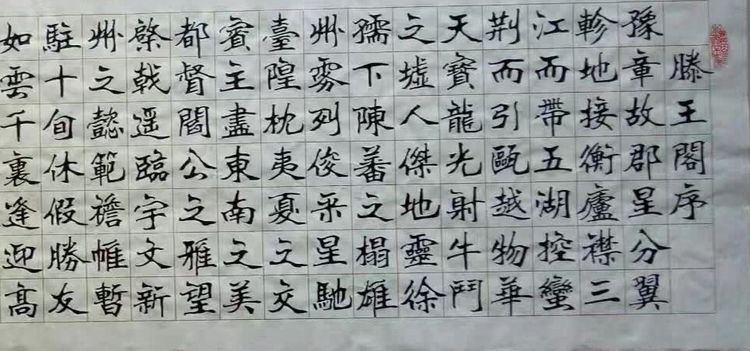 滕王閣序
豫章故郡星分翼
軫地接衡廬襟三
江而帶五湖控蠻
荆而引甌越物華
天寶龍光射牛鬥
之墟人傑地靈徐
孺下陳蕃之榻雄
州霧列俊采星馳
臺隍枕夷夏之交
賓主盡東南之美
都督閻公之雅望
棨戟遥臨宇文新
州之懿範襜帷暫
駐十旬休假勝友
如雲千裏逢迎高